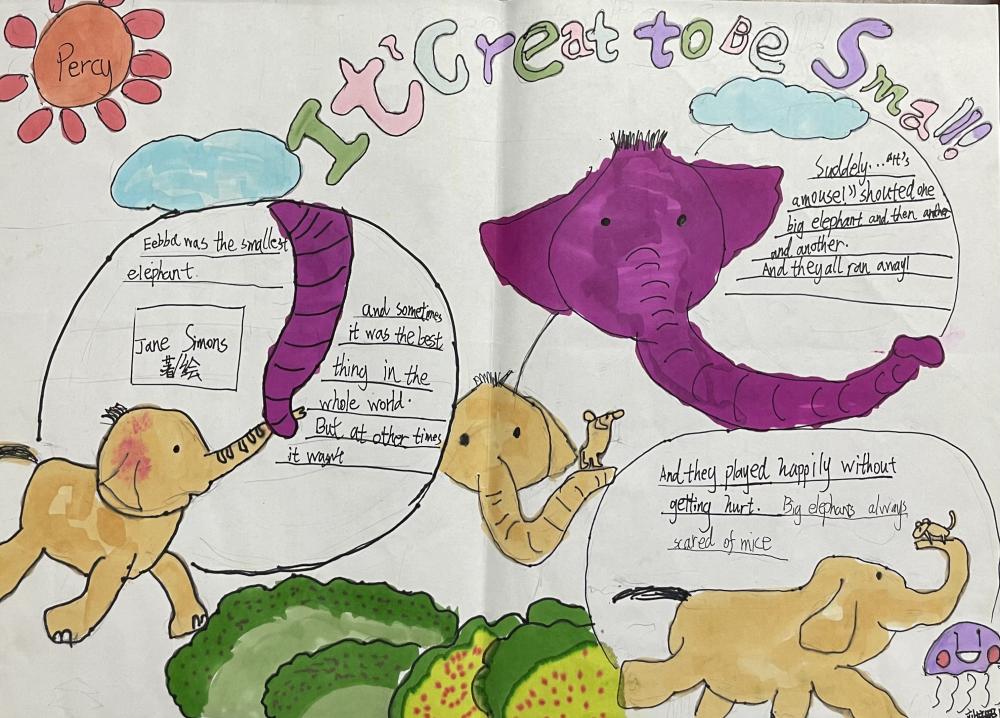 Percy
It's Great to Be Small!
Eebba was the smallest
elephant.
Jane Simons
著/绘
and sometimes
it was the best
thing in the
whole world.
But at other times
it wasn't
Suddely... "It's
amouse!" shouted one
big elephant and then another
and another.
And they all ran away!
And they played happily without
getting hurt. Big elephants always
scared of mice